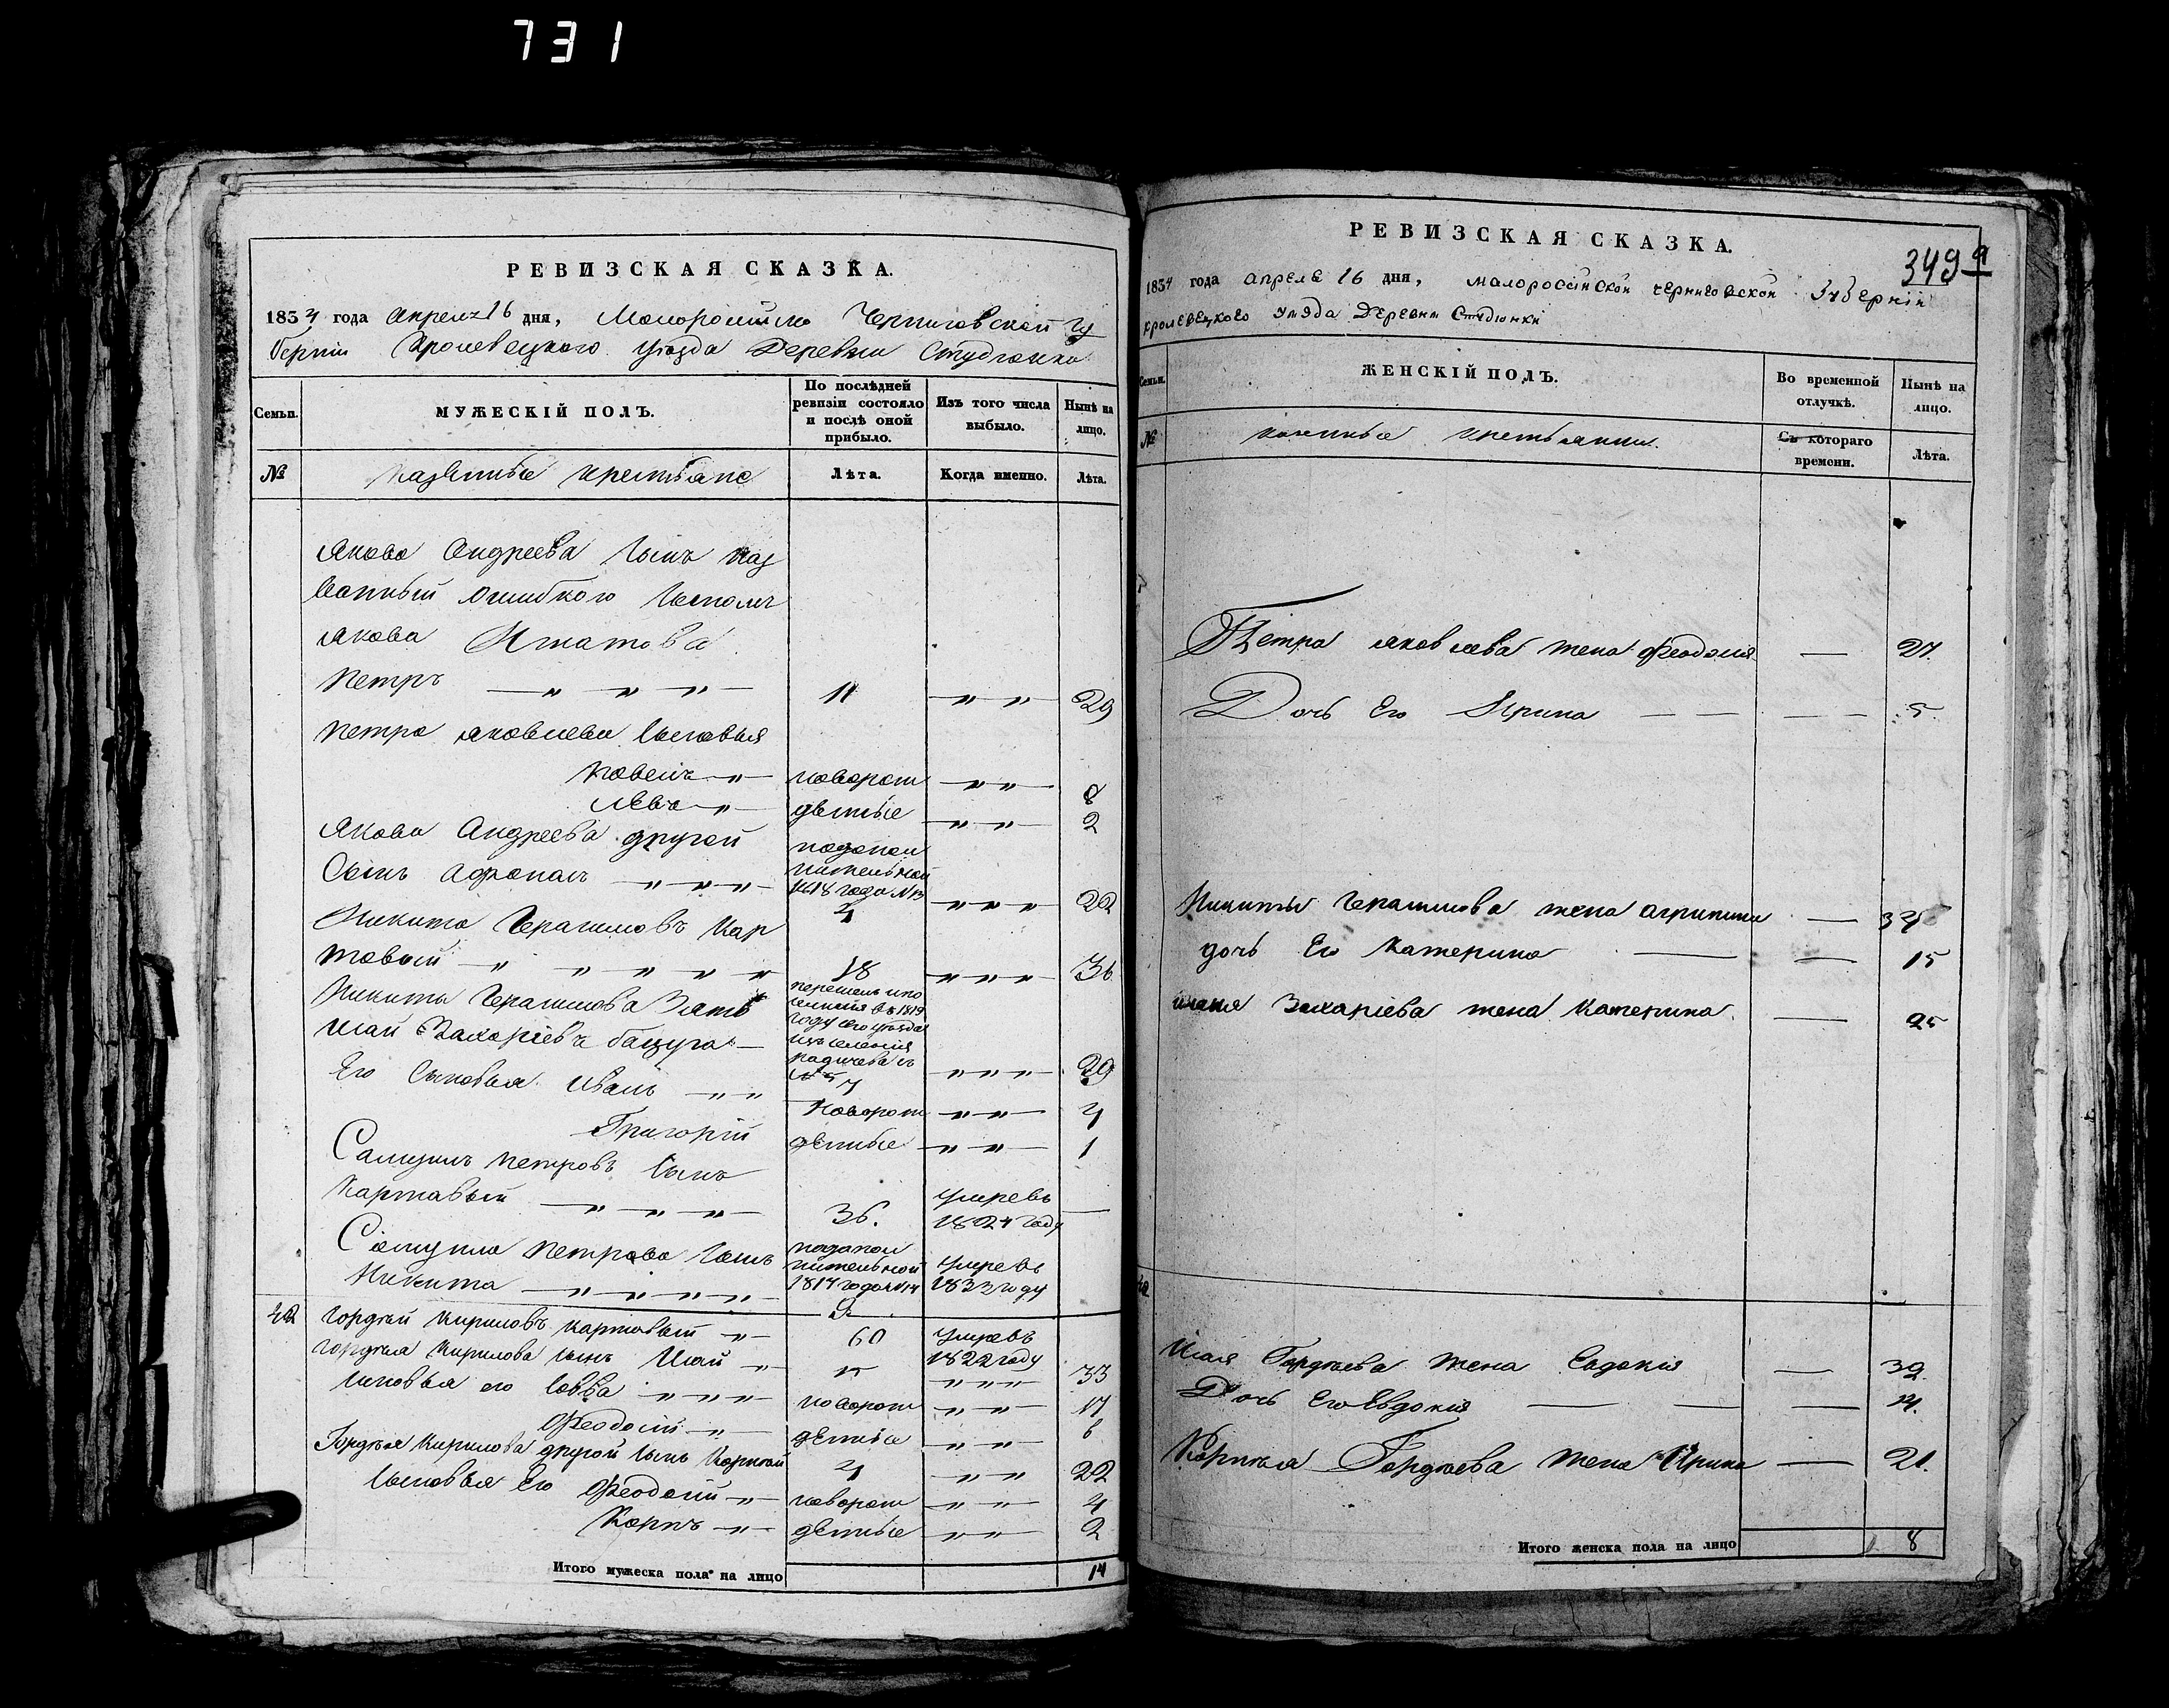 731
РЕВИЗСКАЯ СКАЗКА.
1834 года Апреля 16 дня, Малоросійско Черниговской Гу
берніи Кролевецкого Уѣзда Деревни Студіонки
Семьи.
МУЖЕСКІЙ ПОЛЪ.
По послѣдней ревизіи состояло и послѣ оной прибыло.
Изъ того числа выбыло.
Нынѣ на лицо.
№
казенные крестьяне
Лѣта.
Когда именно.
Лѣта.
Якова Андреева сынъ наз
ванный ошибкою сыномъ
Якова
Петръ 11 29
Петра Яковлева сыновья
Павелъ новорож 8
Левъ денные 2
Якова Андреева другой
сынъ Афонасъ 1818 года №13 4 22
Никита Герасимовъ Кар
тавый 18 36
Никиты Герасимова Зять
Исай Захаріевъ перешелъ 1819 году 7 29
Его сыновья Иванъ новорож 4
Григорій денные 1
Самуилъ Петровъ сынъ
Картавый 36. умре въ 1824 году
Самуила Петрова сынъ
Никита умре въ 1833 году
42 Гордѣй Кириловъ Картавый 60 умре въ 1822 году
Гордѣя Кирилова сынъ Исай 15 33
сыновья его Савва новорож 17
Феодосій денные 6
Гордѣя Кирилова другой сынъ Корнѣй 4 22
сыновья Его Феодосій новорож 4
Карпъ денные 2
Итого мужеска пола на лицо 14
РЕВИЗСКАЯ СКАЗКА.
349
1834 года апреля 16 дня, малоросійской черниговской Губерніи
кролевецкого уѣзда Деревни Студіонки
Семьи.
ЖЕНСКІЙ ПОЛЪ.
Во временной отлучкѣ.
Нынѣ на лицо.
№
казенные крестьянки.
Съ котораго времени.
Лѣта.
Петра Яковлева жена Феодосія 27.
Дочь Его Ирина 5
Никиты Герасимова жена Агрипина
дочь Его Катерина 15
Исаия Захаріева жена Катерина 25
42
Исая Гордѣева жена Евдокія 32.
Дочь Его Евдокія 14.
Корнѣя Гордѣева жена Ирина 21.
Итого женска пола на лицо 8